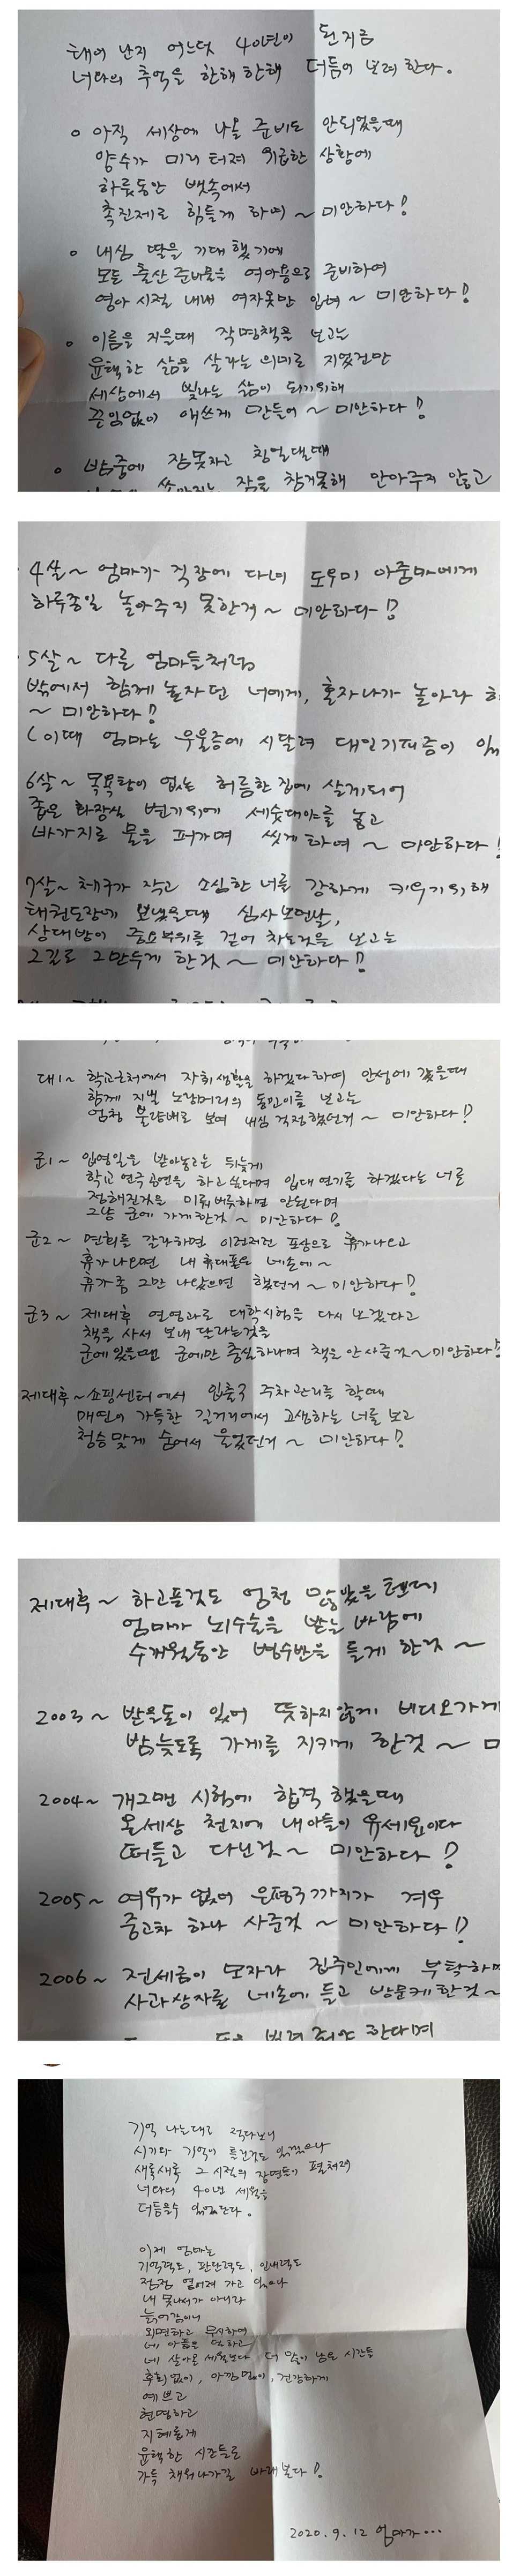 태어 난지 어느덧 40년이 된 지금
너와의 추억을 한해 한해 더듬어 보려 한다.
○ 아직 세상에 나올 준비도 안되었을때
양수가 미리 터져 위급한 상황에
하룻동안 뱃속에서
촉진제로 힘들게 하여 ~ 미안하다!
○ 내심 딸을 기대 했기에
모든 출산 준비물을 여아용으로 준비하여
영아 시절 내내 여자옷만 입혀 ~ 미안하다!
○ 이름을 지을때 작명책을 보고는
윤택한 삶을 살라는 의미로 지었건만
세상에서 빛나는 삶이 되기위해
끈임없이 애쓰게 만들어 ~ 미안하다!
○ 밤중에 잠못자고 칭얼댈때
잠을 참지못해 안아주지 않고
· 4살 ~ 엄마가 직장에 다녀 도우미 아줌마에게
하루종일 놀아주지 못한거 ~ 미안하다!
· 5살 ~ 다른 엄마들처럼
밖에서 함께 놀자던 너에게, 혼자 나가 놀아라
~ 미안하다!
(이때 엄마는 우울증에 시달려 대인기피증이
6살 ~ 목욕탕이 없는 허름한 집에 살게되어
좁은 화장실 변기위에 세숫대야를 놓고
바가지로 물을 퍼가며 씻게 하여 ~ 미안하다!
7살 ~ 체구가 작고 소심한 너를 강하게 키우기 위해
태권도장에 보냈을때 심사 보던날,
상대방이 중요부위를 걷어 차는것을 보고는
그길로 그만두게 한것 ~ 미안하다!
대1 ~ 학교근처에서 자취생활을 하겠다하여 안성에 갔을때
함께 지낼 노랑머리의 동민이를 보고는
엄청 불량배로 보여 내심 걱정했던거 ~ 미안하다!
군1 ~ 입영일을 받아놓고는 뒤늦게
학교 연극 공연을 하고 싶다며 입대 연기를 하겠다는 너를
정해진것을 미뤄 버릇하면 안된다며
그냥 군에 가게 한것 ~ 미안하다!
군2 ~ 면회를 갈라하면 이런저런 포상으로 휴가나오고
휴가 나오면 내 휴대폰은 네손에 ~
휴가 좀 그만 나왔으면 했던거 ~ 미안하다!
군3 ~ 제대후 연영과로 대학시험을 다시 보겠다고
책을 사서 보내 달라는것을
군에 있을땐 군에만 충실하라며 책을 안사준것 ~ 미안하다!
제대후 ~ 쇼핑센터에서 입출구 주차관리를 할때
매연이 가득한 길거리에서 고생하는 너를 보고
청승맞게 숨어서 울었던거 ~ 미안하다!
제대후 ~ 하고픈것도 엄청 많았을텐데
엄마가 뇌수술을 받는 바람에
수개월동안 병수발을 들게 한것 ~
2003 ~ 받을돈이 있어 뜻하지않게 비디오가게
밤늦도록 가게를 지키게 한것 ~
2004 ~ 개그맨 시험에 합격 했을때
온세상 천지에 내아들이 유세윤이다
떠들고 다닌것 ~ 미안하다!
2005 ~ 여유가 없어 은평구까지가 겨우
중고차 하나 사준것 ~ 미안하다!
2006 ~ 전세금이 모자라 집주인에게 부탁하며
사과상자를 네손에 들고 방문케한것 ~
한다며
기억 나는대로 적다보니
시기와 기억이 틀린것도 있겠으나
새록새록 그 시절의 장면들이 펼쳐져
너와의 40년 세월을
더듬을수 있었단다.
이제 엄마는
기억력도, 판단력도, 인내력도
점점 옅어져 가고 있으나
내 못나서가 아니라
늙어감이니
외면하고 무시하여
네 아픔은 덜하고
네 살아온 세월보다 더 많이 남은 시간들
후회없이, 아낌없이, 건강하게
예쁘고
현명하고
지혜롭게
윤택한 시간들로
가득 채워나가길 바래본다!
2020. 9. 12 엄마가...